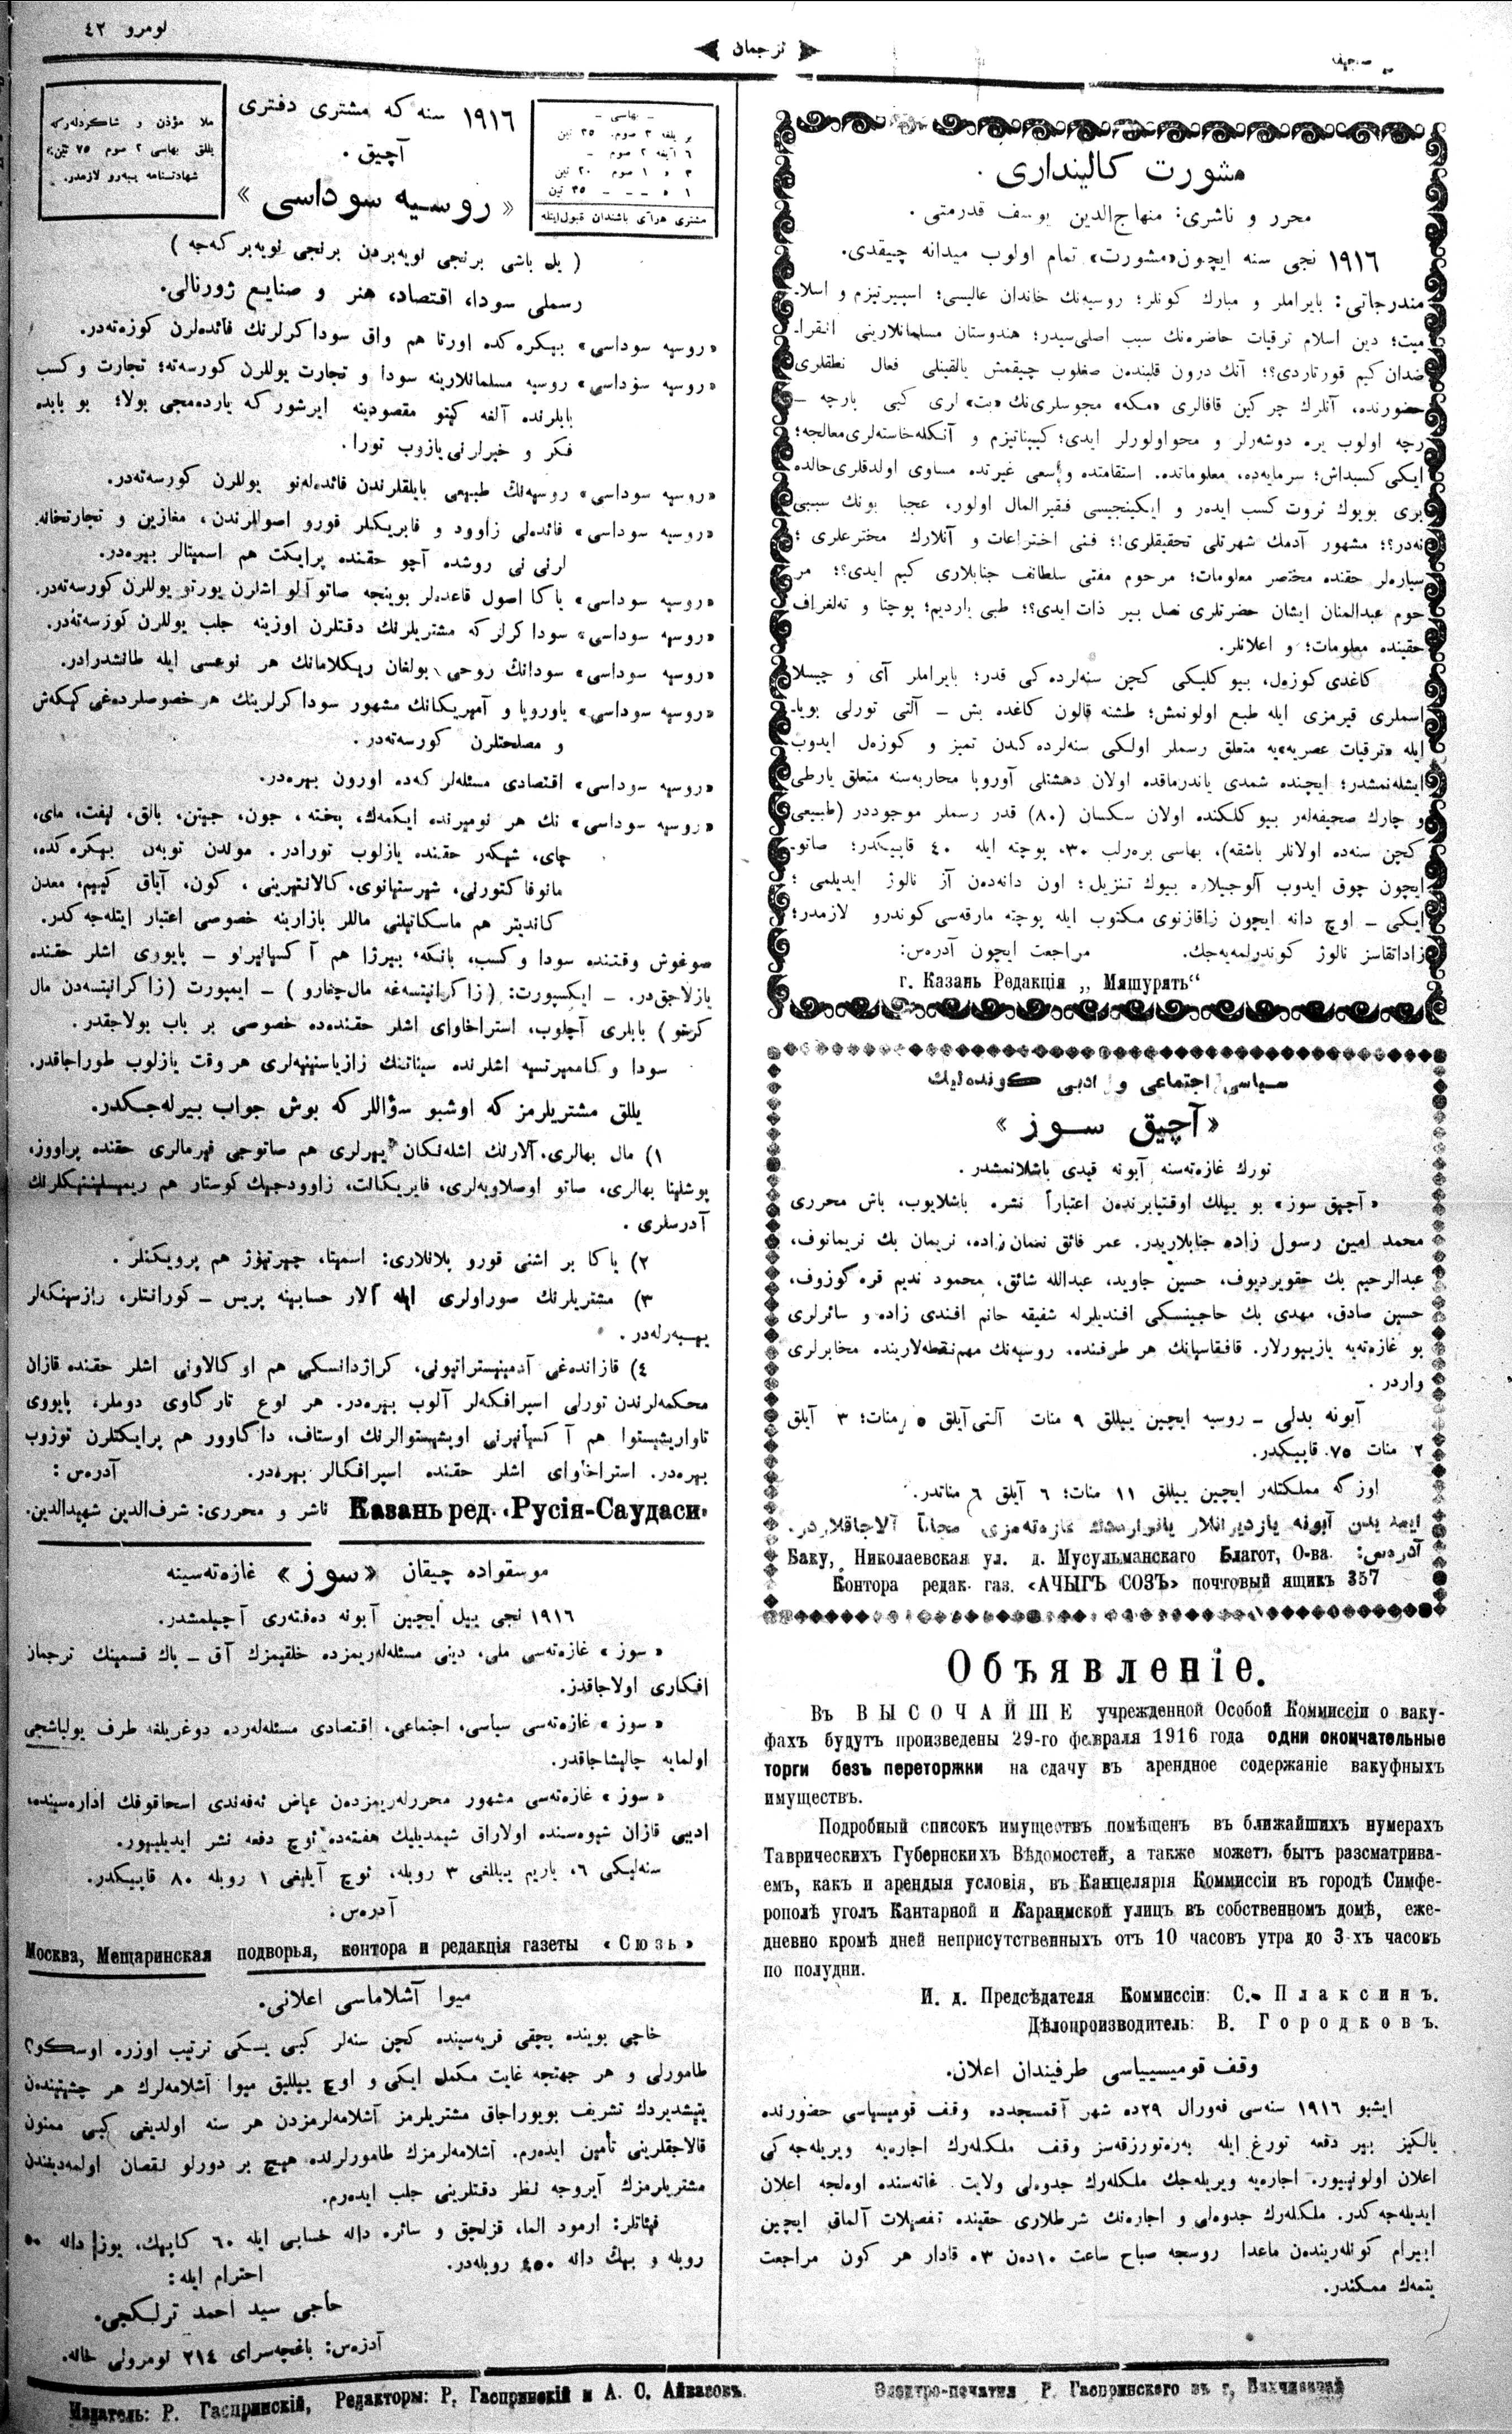 نومرو ٤٢
ترجمان
صحیفه
مشورت كالينداری
محرر و ناشری: منهاج‌الدين يوسف قدرمتی .
١٩١٦ نجی سنه ايچون «مشورت» تمام اولوب ميدانه چيقدی.
مندرجاتی: بايراملر و مبارك كونلر؛ روسيه‌نك خاندان عاليسی؛ اسپيرتيزم و اسلا‌ـ
ميت؛ دين اسلام ترقيات حاضره‌نك سبب اصلی‌سيدر؛ هندوستان مسلمانلارينی انقرا‌ـ
ضدان كيم قورتاردی؟؛ آنك درون قلبندن صغلوب چيقمش يالقينلی فعال نطقلری
حضورنده، آنلرك چركين قافالری «مكه» مجوسلری‌نك «بت» لری كبی پارچه ـ
رچه اولوب يره دوشه‌رلر و محو اولورلر ايدی؛ كيپناتيزم و آنكله خاسته‌لری معالجه؛
ايكی كسبداش؛ سرمايه‌ده، معلوماتده. استقامتده و سعی غيرتده مساوی اولدقلری حالده
بری بويوك ثروت كسب ايده‌ر و ايكينجيسی فقيرالمال اولور، عجبا بونك سببی
نه‌در؟؛ مشهور آدمك شهرتلی تحقيقلری!؛ فنی اختراعات و آنلارك مخترعلری ؛
سياره‌لر حقنده مختصر معلومات؛ مرحوم مفتی سلطانف جنابلاری كيم ايدی؟؛ مر
حوم عبدالمنان ايشان حضرتلری نصل بير ذات ايدی؟؛ طبی يارديم؛ پوچتا و ته‌لغراف
حقينده معلومات؛ و اعلانلر.
كاغدی كوزه‌ل، بيو كليكی كچن سنه‌لرده‌كی قدر؛ بايراملر آی و چيسلا
اسملری قيرمزی ايله طبع اولونمش؛ طشنه قالون كاغده بش ـ آلتی تورلی بويا‌ـ
ايله «ترقيات عصريه»يه متعلق رسملر اولكی سنه‌لرده‌كدن تميز و كوزه‌ل ايدوب
ايشله‌نمشدر؛ ايچنده شمدی ياندرماقده اولان دهشتلی آوروپا محاربه‌سنه متعلق يارطی
و چارك صحيفه‌لر بيو كلكنده اولان سكسان (٨٠) قدر رسملر موجوددر (طبيعی
كچن سنه‌ده اولانلر باشقه)، بهاسی بره‌رلب ٣٠، پوچته ايله ٤٠ قاپيكدر؛ صاتو‌ـ
ايچون چوق ايدوب آلوجيلاره بيوك تنزيل؛ اون دانه‌دن آز نالوژ ايديلمی ؛
ايكی ـ اوچ دانه ايچون زاقازنوی مكتوب ايله پوچته مارقه‌سی كوندرو لازمدر؛
زاداتقاسز نالوژ كوندرلمه‌يه‌جك. مراجعت ايچون آدره‌س:
г. Казань Редакція „ Мяшурять“
سياسی اجتماعی و ادبی كونده‌ليك
« آچيق سوز »
تورك غازه‌ته‌سنه آبونه قيدی باشلانمشدر .
« آچيق سوز » بو ييلك اوقتيابرندن اعتباراً نشره باشلايوب، باش محرری
محمد امين رسول زاده جنابلاريدر. عمر فائق نعمان زاده، نريمان بك نريمانوف،
عبدالرحيم بك حقويرديوف، حسين جاويد، عبدالله شائق، محمود نديم قره‌كوزوف،
حسين صادق، مهدی بك حاجينسكی افنديلرله شفيقه خانم افندی زاده و سائرلری
بو غازه‌ته‌يه يازييورلار. قافقاسيانك هر طرفنده، روسيه‌نك مهم نقطه‌لارينده مخابرلری
واردر .
آبونه بدلی ـ روسيه ايچين ييللق ٩ منات آلتی آيلق ٥ منات؛ ٣ آيلق
٢ منات ٧٥ قاپيكدر.
اوزكه مملكتلر ايچين ييللق ١١ منات؛ ٦ آيلق ٦ مناتدر.
آدره‌س: Баку, Николаевская ул. д. Мусульманскаго Благот, О-ва.
Контора редак. газ. «АЧЫГЪ СОЗЪ» почтовый ящикъ 357
Объявленіе.
Въ ВЫСОЧАЙШЕ учрежденной Особой Коммиссіи о ваку-
фахъ будутъ произведены 29-го февраля 1916 года одни окончательные
торги безъ переторжки на сдачу въ арендное содержаніе вакуфныхъ
имуществъ.
Подробный списокъ имуществъ помѣщенъ въ ближайшихъ нумерахъ
Таврическихъ Губернскихъ Вѣдомостей, а также можетъ быть разсматрива-
емъ, какъ и арендыя условія, въ Канцелярія Коммиссіи въ городѣ Симфе-
рополѣ уголъ Кантарной и Караимской улицъ въ собственномъ домѣ, еже-
дневно кромѣ дней неприсутственныхъ отъ 10 часовъ утра до 3-хъ часовъ
по полудни.
И. д. Предсѣдателя Коммиссіи: С. Плаксинъ.
Дѣлопроизводитель: В. Городковъ.
وقف قوميسيياسی طرفيندان اعلان.
ايشبو ١٩١٦ سنه‌سی فه‌ورال ٢٩ده شهر آقمسجدده وقف قوميسياسی حضورنده
يالكيز بير دفعه تورغ ايله په‌ره‌تورژقه‌سز وقف ملكله‌رك اجاره‌يه ويريله‌جه‌كی
اعلان اولونييور. اجاره‌يه ويريله‌جك ملكله‌رك جدوه‌لی ولايت غاته‌سنده اوه‌لجه اعلان
ايديله‌جه‌كدر. ملكله‌رك جدوه‌لی و اجاره‌نك شرطلاری حقينده تفصيلات آلماق ايچين
ابيرام كونله‌ريندن ماعدا روسجه صباح ساعت ١٠دن ٣ه قادار هر كون مراجعت
يتمه‌ك ممكندر.
١٩١٦ سنه كه مشتری دفتری
آچيق .
« روسيه سوداسی »
ـ بهاسی ـ
بر يلغه ٣ صوم. ٣٥ تين
٦ آيغه ٢ صوم ـ
٣ ه ١ صوم ٢٠ تين
١ ه ـ ـ ـ ٣٥ تين
مشتری هرآی باشندان قبول ايتله
ملا مؤذن و شاكردلرگه
يللق بهاسی ٢ صوم ٧٥ تين
شهادتنامه يبه‌رو لازمدر.
( يل باشی برنجی نويه‌بردن برنجی نويه‌برگه‌چه )
رسملی سودا، اقتصاد، هنر و صنايع ژورنالی.
«روسيه سوداسی» بيكره‌كده اورتا هم واق سوداكرلرنك فائده‌لرن كوزه‌ته‌در.
«روسيه سوداسی» روسيه مسلمانلارينه سودا و تجارت يوللرن كورسه‌ته؛ تجارت و كسب
بابلرنده آلغه كيتو مقصودينه ايرشورگه يارده‌مچی بولا؛ بو بابده
فكر و خبرلرنی يازوب تورا.
«روسيه سوداسی» روسيه‌نك طبيعی بايلقلرندن فائده‌له‌نو يوللرن كورسه‌ته‌در.
«روسيه سوداسی» فائده‌لی زاوود و فابريكلر قورو اصوللرندن، مغازين و تجارتخانه
لرنی نی روشده آچو حقنده پرايكت هم اسميتالر بيره‌در.
«روسيه سوداسی» ياكا اصول قاعده‌لر بوينچه صاتو آلو اشلرن يورتو يوللرن كورسه‌ته‌در.
«روسيه سوداسی» سوداكرلرگه مشتريلرنك دقتلرن اوزينه جلب يوللرن كورسه‌ته‌در.
«روسيه سوداسی» سودانك روحی بولغان ريكلامانك هر نوعسی ايله طانشدرادر.
«روسيه سوداسی» ياوروپا و آمريكانك مشهور سوداكرلرينك هر خصوصلرده‌غی كيكه‌ش
و مصلحتلرن كورسه‌ته‌در.
«روسيه سوداسی» اقتصادی مسئله‌لرگه‌ده اورون بيره‌در.
«روسيه سوداسی» نك هر نوميرنده ايكمه‌ك، پخته، جون، جيتن، بالق، ليفت، مای،
چای، شيكه‌ر حقنده يازلوب تورادر. مولدن توبه‌ن بيكره‌كده،
مانوفاكتورنی، شهرستيانوی، كالانتيرينی، كون، آياق كييم، معدن
كانديتر هم ماسكاتيلنی ماللر بازارينه خصوصی اعتبار ايتله‌جه‌كدر.
صوغوش وقتنده سودا و كسب، بانكه، بيرژا هم آكسيانير‌لو ـ پايووی اشلر حقنده
يازلاچق‌در. ـ ايكسپورت: (زاكرانيتسه‌غه مال چغارو) ـ ايمپورت (زاكرانيتسه‌دن مال
كرتو) بابلری آچلوب، استراخاوای اشلر حقنده‌ده خصوصی بر باب بولاچقدر.
سودا و كاميرتسيه اشلرنده سيناتنك زازياسنينيه‌لری هروقت يازلوب طوراچاقدر.
يللق مشتريلرمزگه اوشبو سؤاللرگه بوش جواب بيرله‌جكدر.
١) مال بهالری. آلارنك اشله‌نكان ييرلری هم صاتوچی فيرمالری حقنده پراووز،
پوشلينا بهالری، صاتو اوصلاويه‌لری، فابريكانت، زاوودچيك كوستار هم ريميسلينيكلرنك
آدرسلری .
٢) ياكا بر اشنی قورو پلانلاری: اسميتا، چيرتيوژ هم پرويكتلر .
٣) مشتريلرنك صوراولری ايله آلار حسابينه پريس ـ كورانتلر، رازسينكه‌لر
ييبه‌رله‌در .
٤) قازانده‌غی آدمينيستراتيونی، كراژدانسكی هم اوكالاونی اشلر حقنده قازان
محكمه‌لرندن تورلی اسپرافكه‌لر آلوب بيره‌در. هر نوع تارگاوی دوملر، پايووی
تاواريشيستوا هم آكسيانيرنی اوبشيستوالرنك اوستاف، داگاوور هم پرايكتلرن توزوب
بيره‌در. استراخاوای اشلر حقنده اسپرافكالر بيره‌در. آدره‌س:
Казань ред. «Русія-Саудаси» ناشر و محرری: شرف‌الدين شهيدالدين.
موسقواده چيقان « سوز » غازه‌ته‌سينه
١٩١٦ نجی ييل ايچين آبونه ده‌فته‌ری آچيلمشدر.
« سوز » غازه‌ته‌سی ملی، دينی مسئله‌له‌ريمزده خلقيمزك آق ـ پاك قسمينك ترجمان
افكاری اولاجاقدر.
« سوز » غازه‌ته‌سی سياسی، اجتماعی، اقتصادی مسئله‌له‌رده دوغريلغه طرف يولباشچی
اولمايه چاليشاجاقدر.
« سوز » غازه‌ته‌سی مشهور محررله‌ريمزدن عياض ئه‌فه‌ندی اسحاقوفك اداره‌سينده،
ادبی قازان شيوه‌سنده اولاراق شيمديليك هفته‌ده ئوچ دفعه نشر ايديلييور.
سنه‌ليكی ٦، ياريم ييللغی ٣ روبله، ئوچ آيليغی ١ روبله ٨٠ قاپيكدر.
آدره‌س:
Москва, Мещаринская подворья, контора и редакція газеты «Сюзь»
ميوا آشلاماسی اعلانی.
خاچی بوينده پچقی قريه‌سينده كچن سنه‌لر كبی يسكی ترتيب اوزره اوسكو؟
طامورلی و هر جهتجه غايت مكمل ايكی و اوچ ييلليق ميوا آشلامه‌لرك هر چشيتيندن
يتيشديردك تشريف بويوراجاق مشتريلرمز آشلامه‌لرمزدن هر سنه اولديغی كبی ممنون
قالاجقلرينی تأمين ايده‌رم. آشلامه‌لرمزك طامورلرلده هيچ بر دورلو نقصان اولمه‌ديغندن
مشتريلرمزك آيروجه نظر دقتلرينی جلب ايده‌رم.
فيئاتلر: ارمود الما، قزلجق و سائره دانه حسابی ايله ٦٠ كاپيك، يوز دانه ٥٠
روبله و بيك دانه ٤٥٠ روبله‌در.
احترام ايله:
حاجی سيد احمد ترلكجی.
آدره‌س: باغچه‌سرای ٢١٤ نومرولی خانه.
Издатель: Р. Гаспринскій, Редакторы: Р. Гаспринскій и А. С. Айвазовъ.
Электро-печатня Р. Гаспринского въ г. Бахчисарай